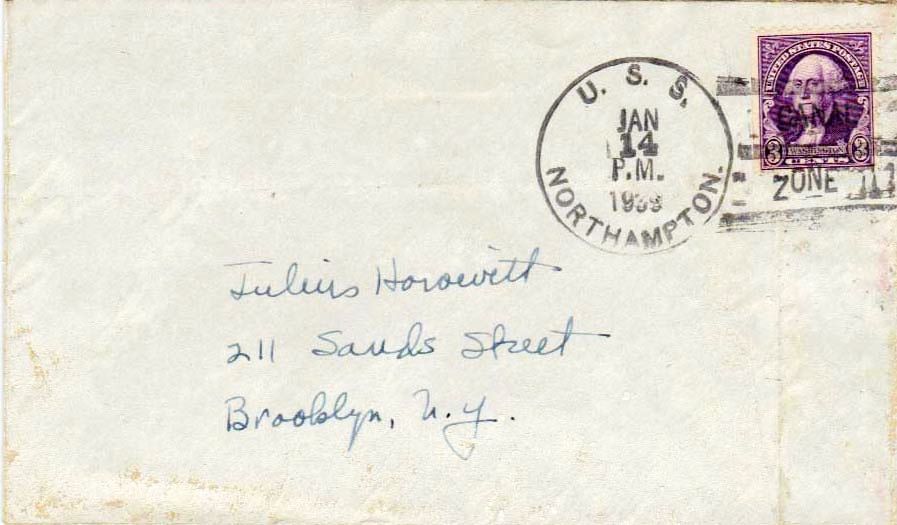 U. S. S.
JAN
14
P.M.
1939
NORTHAMPTON.
UNITED STATES POSTAGE
CANAL
WASHINGTON
3 CENTS 3
ZONE
Julius Horowitt
211 Sands Street
Brooklyn, N.Y.